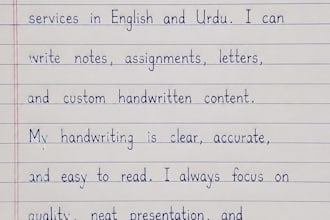 services in English and Urdu. I can
write notes, assignments, letters,
and custom handwritten content.
My handwriting is clear, accurate,
and easy to read. I always focus on
quality, neat presentation, and